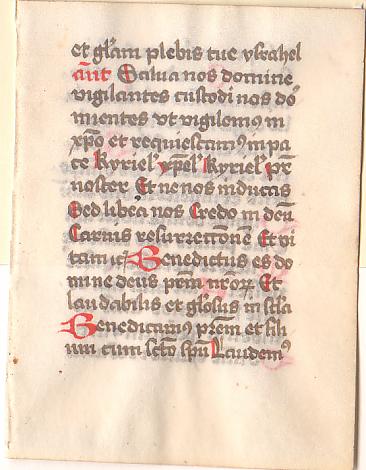 et glͣam plebis tue ysrahel
an̄t Salua nos domine
vigilantes custodi nos dor̄
mientes vt vigilemꝰ in
xp̄o et requiescamꝰ in pa
ce Kyriel' xp̄el' Kyriel' pr̄
noster Et ne nos inducas
Sed libera nos Credo in deū
Carnis resurrectionē Et vi
tam Benedictus es do
mine deus prēm nr̄oꝝ Et
laudabilis et gl'osus in scl̄a
Benedicamꝰ prēm et fili
um cum sctō spū Laudemꝰ